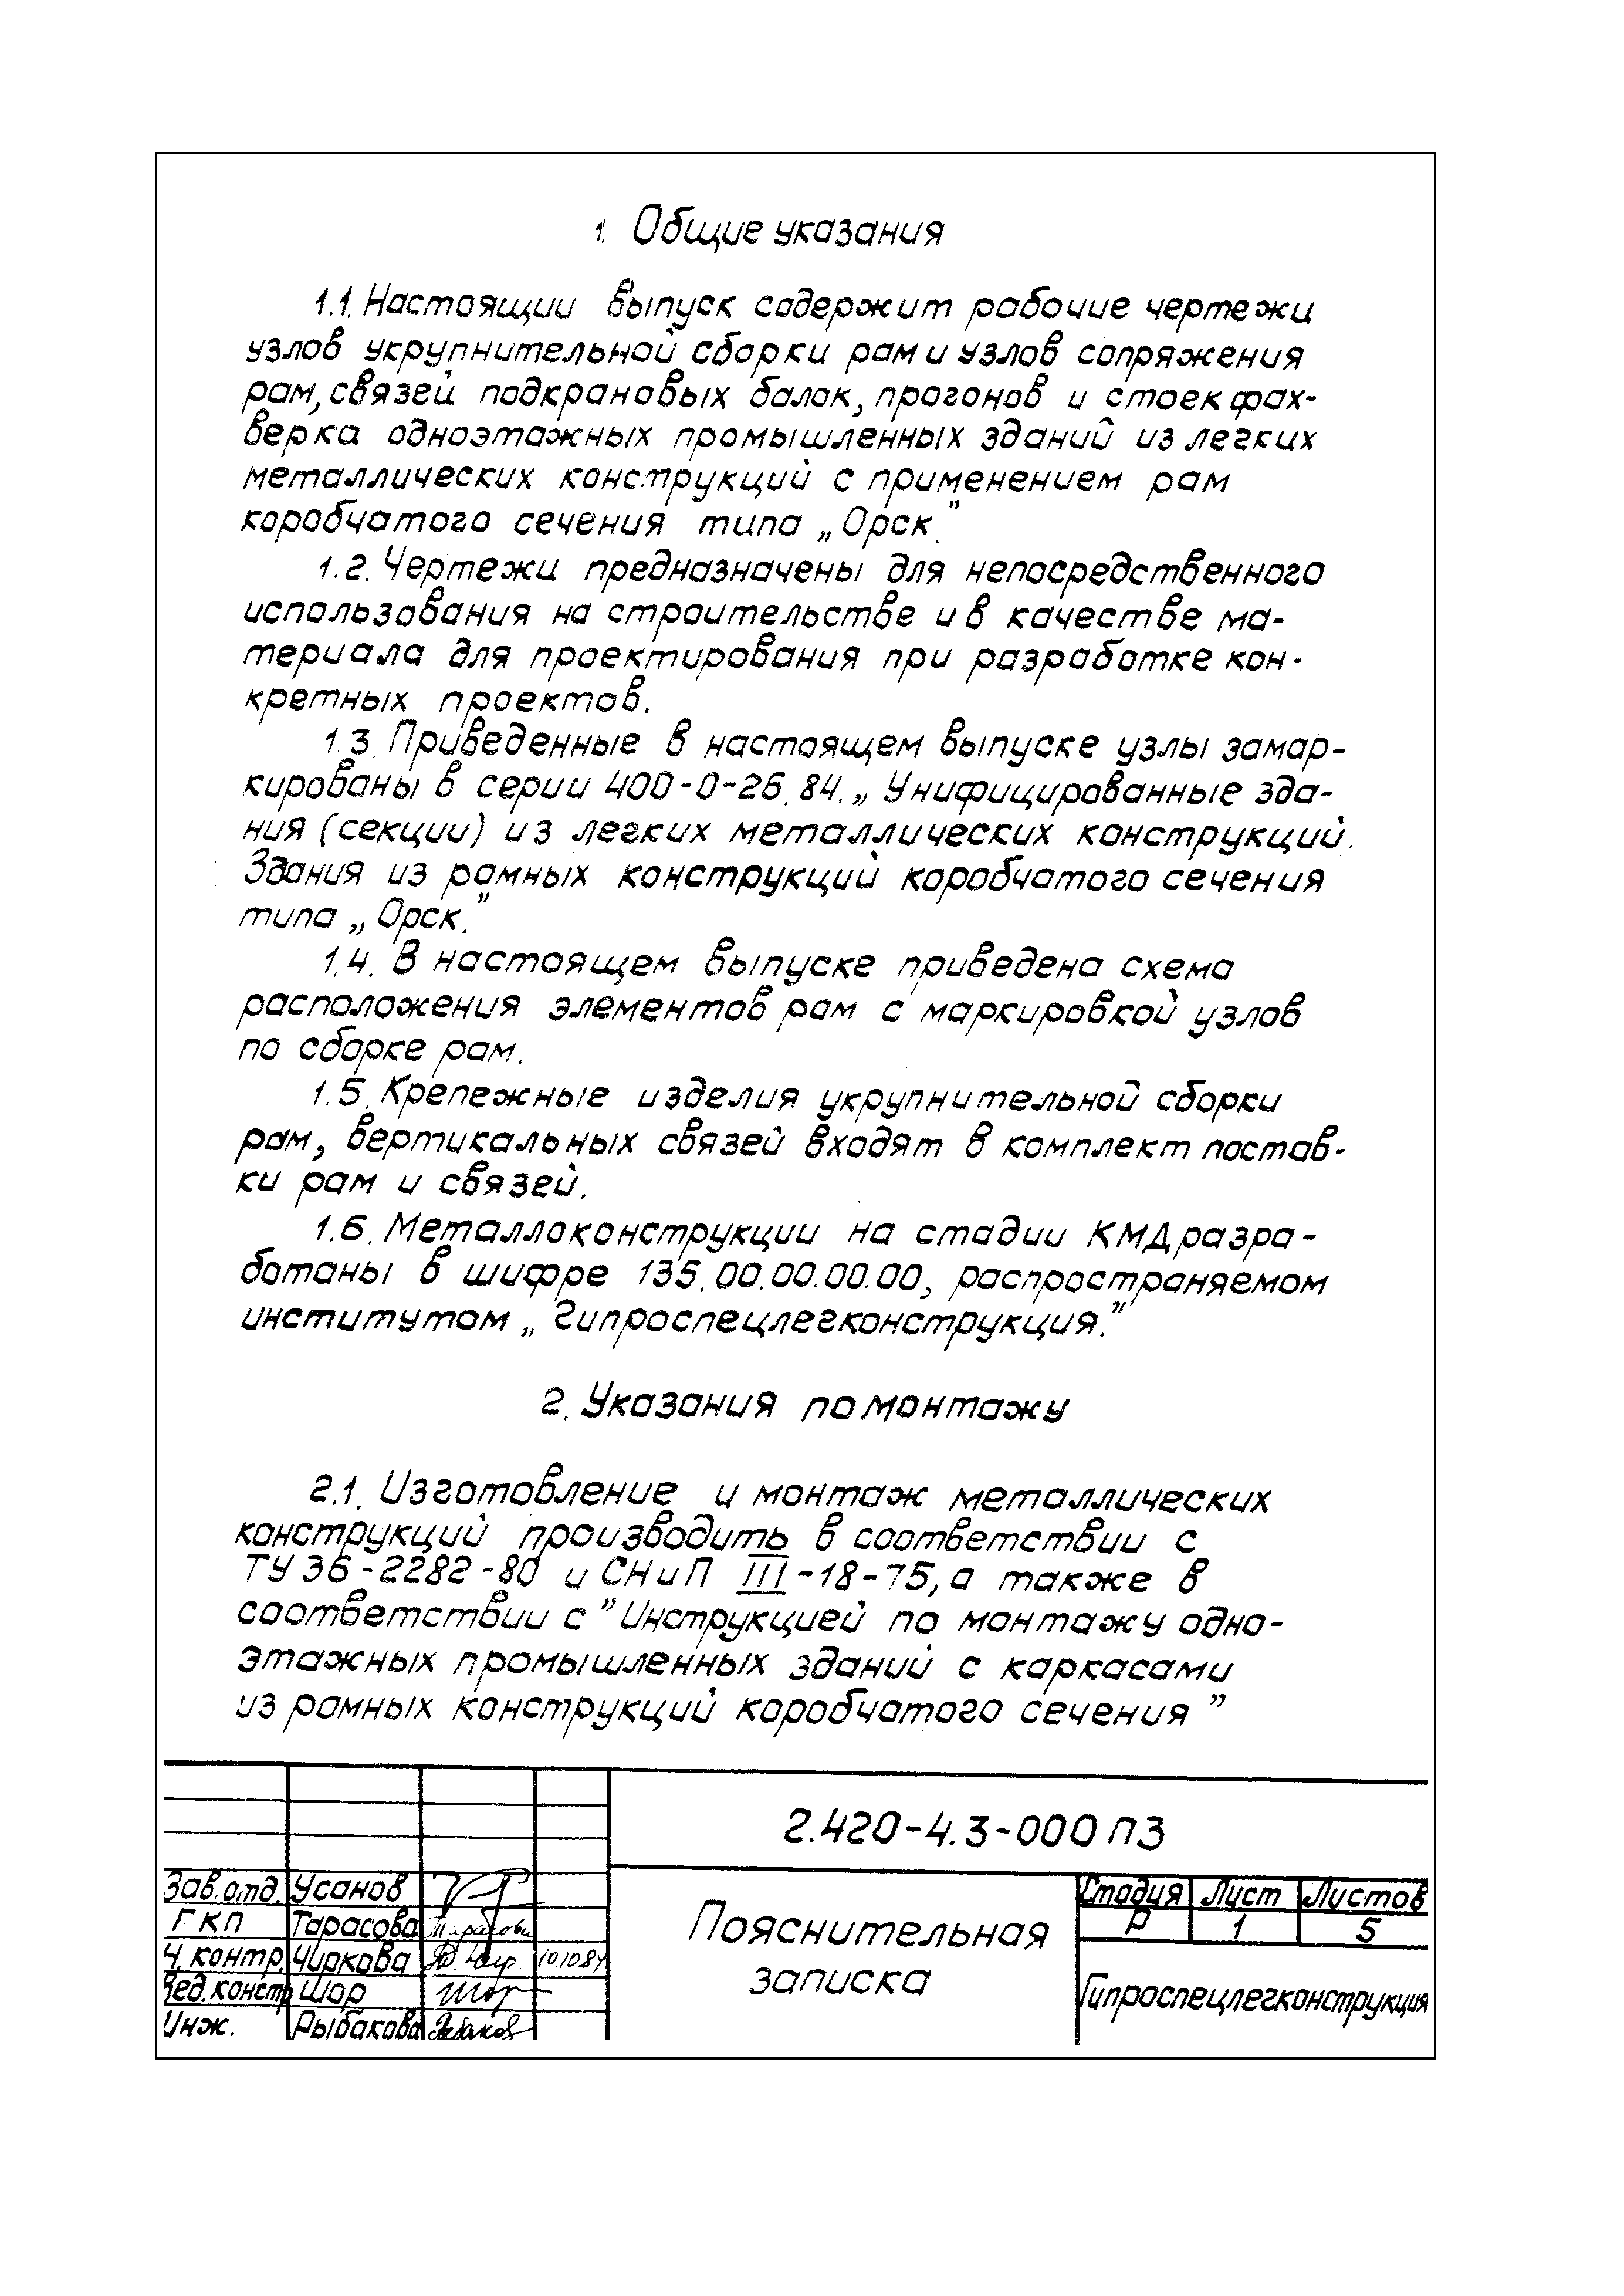 1. Общие указания
1.1. Настоящии выпуск содержит рабочие чертежи
узлов укрупнительной сборки рам и узлов сопряжения
рам, связей подкрановых балок, прогонов и стоек фах-
верка одноэтажных промышленных зданий из легких
металлических конструкций с применением рам
коробчатого сечения типа „Орск."
1.2. Чертежи предназначены для непосредственного
использования на строительстве и в качестве ма-
териала для проектирования при разработке кон-
кретных проектов.
1.3. Приведенные в настоящем выпуске узлы замар-
кированы в серии 400-0-26.84. „Унифицированные зда-
ния (секции) из легких металлических конструкций.
Здания из рамных конструкций коробчатого сечения
типа „Орск."
1.4. В настоящем выпуске приведена схема
расположения элементов рам с маркировкой узлов
по сборке рам.
1.5. Крепежные изделия укрупнительной сборки
рам, вертикальных связей входят в комплект постав-
ки рам и связей.
1.6. Металлоконструкции на стадии КМД разра-
ботаны в шифре 135.00.00.00.00, распространяемом
институтом „Гипроспецлегконструкция."
2. Указания по монтажу
2.1. Изготовление и монтаж металлических
конструкций производить в соответствии с
ТУ 36-2282-80 и СНиП III-18-75, а также в
соответствии с "Инструкцией по монтажу одно-
этажных промышленных зданий с каркасами
из рамных конструкций коробчатого сечения"
2.420-4.3-000 ПЗ
Зав.отд. Усанов
ГКП Тарасова
Ч. контр. Чиркова 10.10.84
Вед.констр Шор Шор
Инж. Рыбакова
Пояснительная
записка
Стадия Лист Листов
Р 1 5
Гипроспецлегконструкция